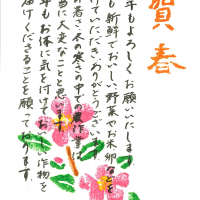 賀春
年もよろしくお願いいたします
も新鮮でおいしい野菜やお米、卵などを
けていただきありがとうございます
の暑さ、冬の寒さの中での農作業は
当に大変なことと思います
年もお体に気を付けておいしい作物を
届けしてくださることを願っております。